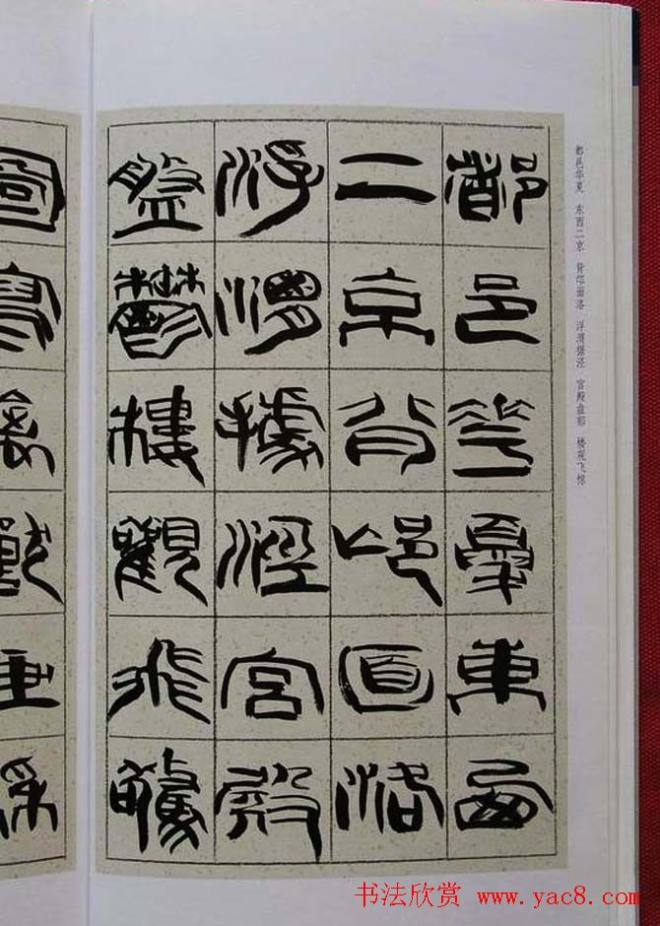 都邑華夏東西
二京背邙面洛
浮渭據涇宮殿
盤鬱樓觀飛驚
圖寫禽獸畫綵
都邑华夏 东西二京 背邙面洛 浮渭据泾 宫殿盘郁 楼观飞惊
书法欣赏 www.yac8.com